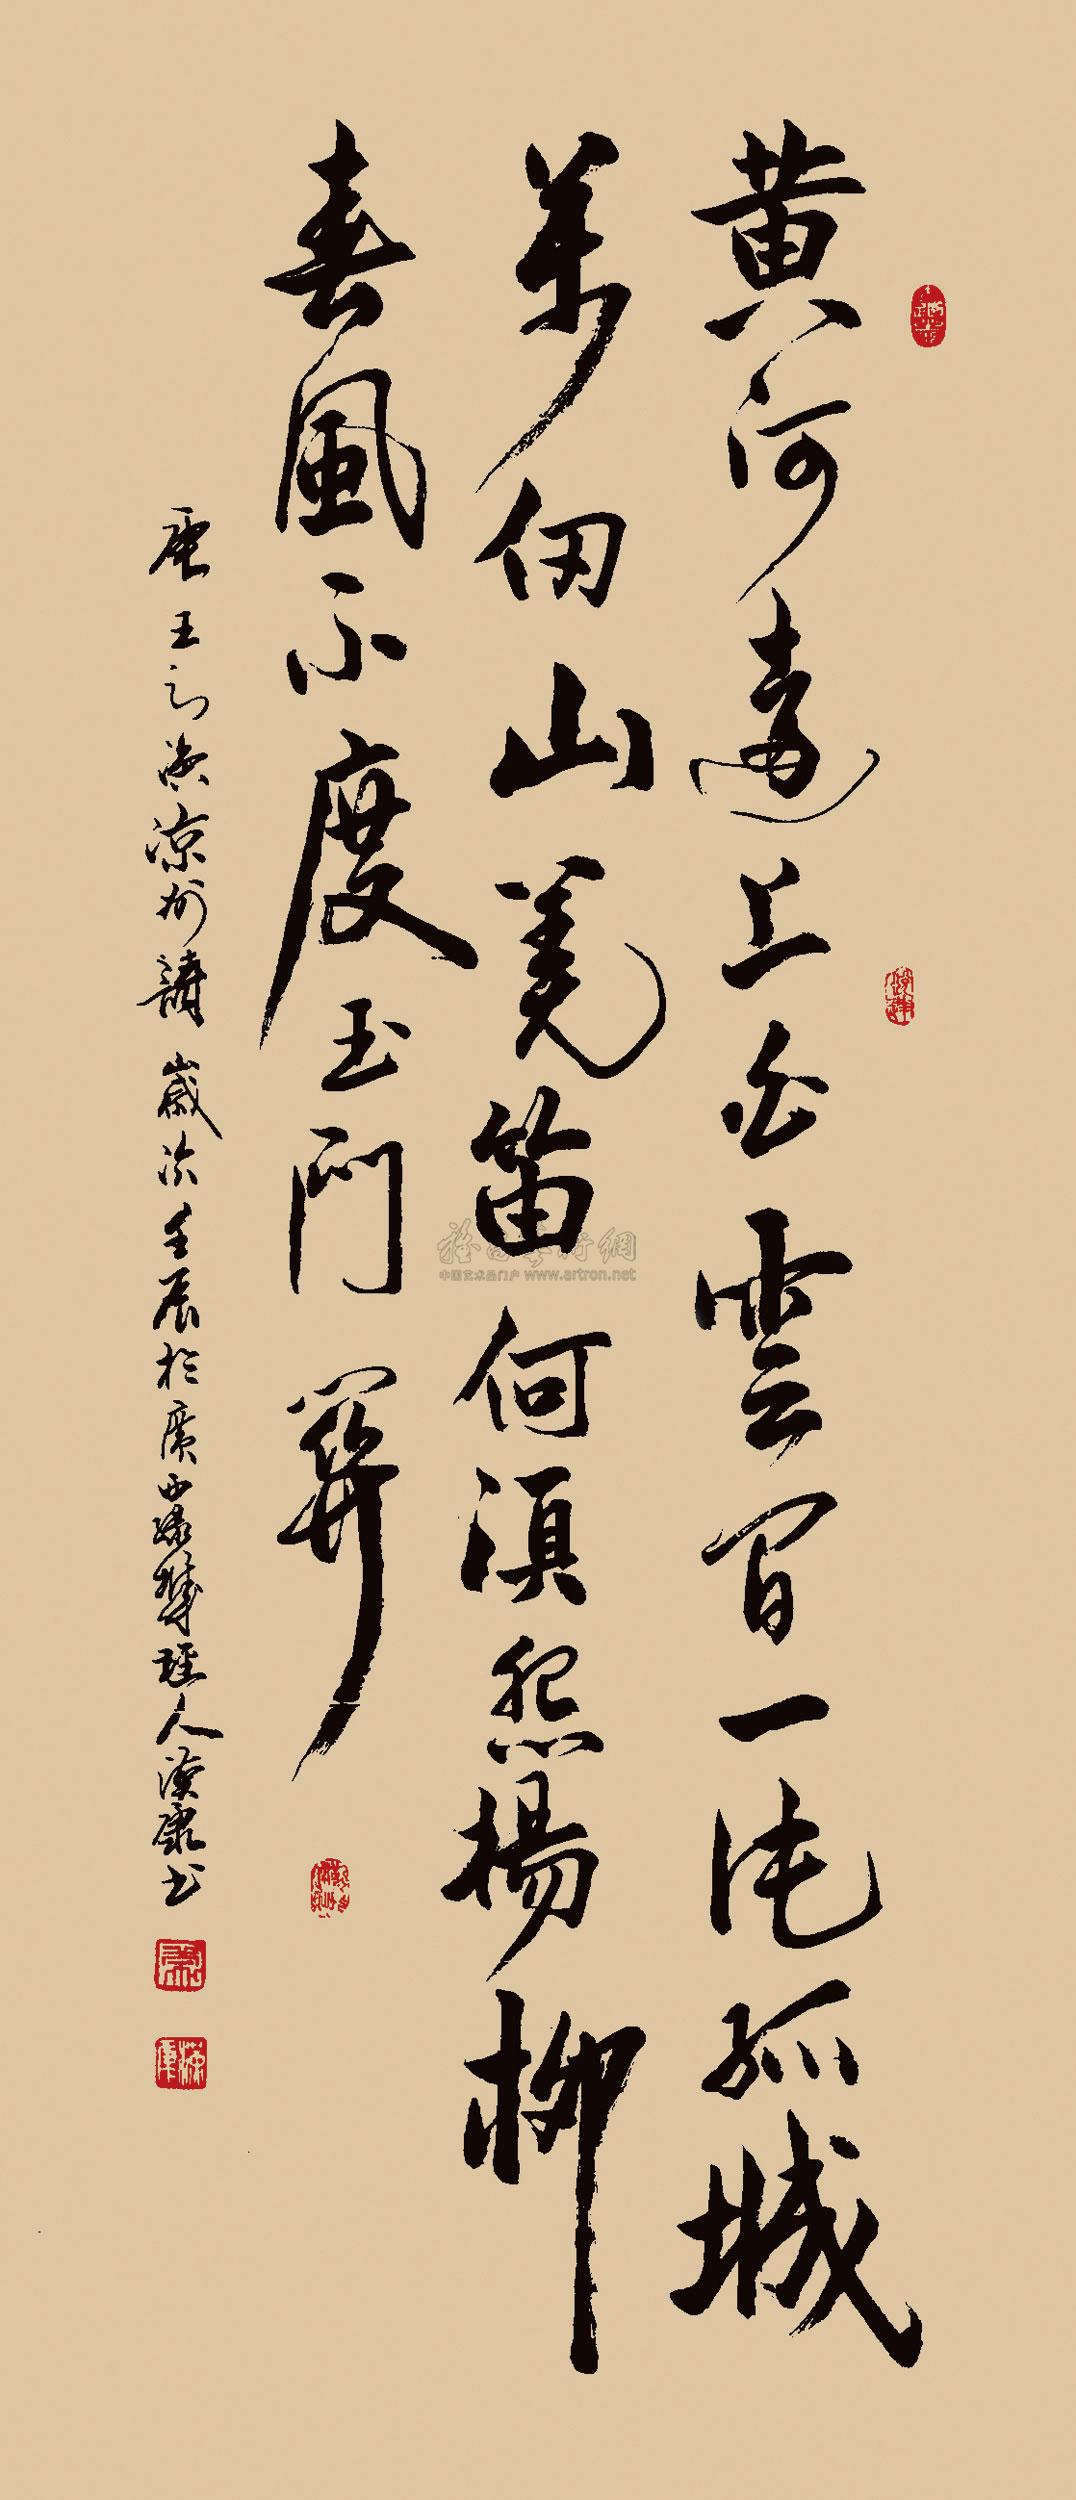 黄河遠上白雲間一片孤城
萬仞山羌笛何須怨楊柳
春風不度玉門關
唐王之渙涼州詞 歲次壬辰於廣西 人漢康书
中国艺术品门户 www.artron.net